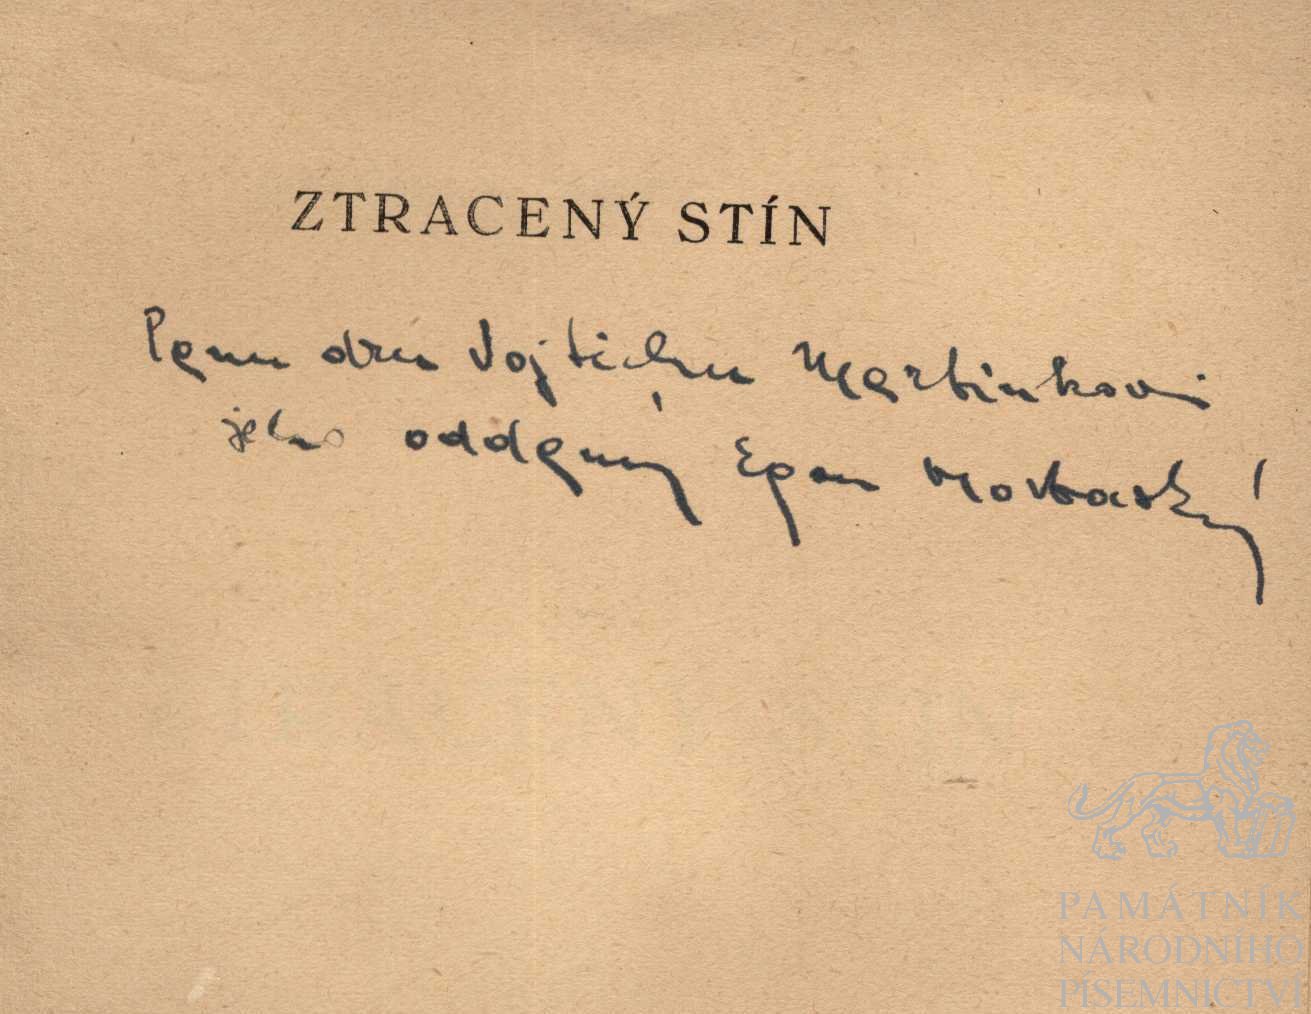 ZTRACENÝ STÍN
Panu dru Vojtěchu Martínkovi
jeho oddaný Egon Hostovský
PAMÁTNÍK
NÁRODNÍHO
PÍSEMNICTVÍ